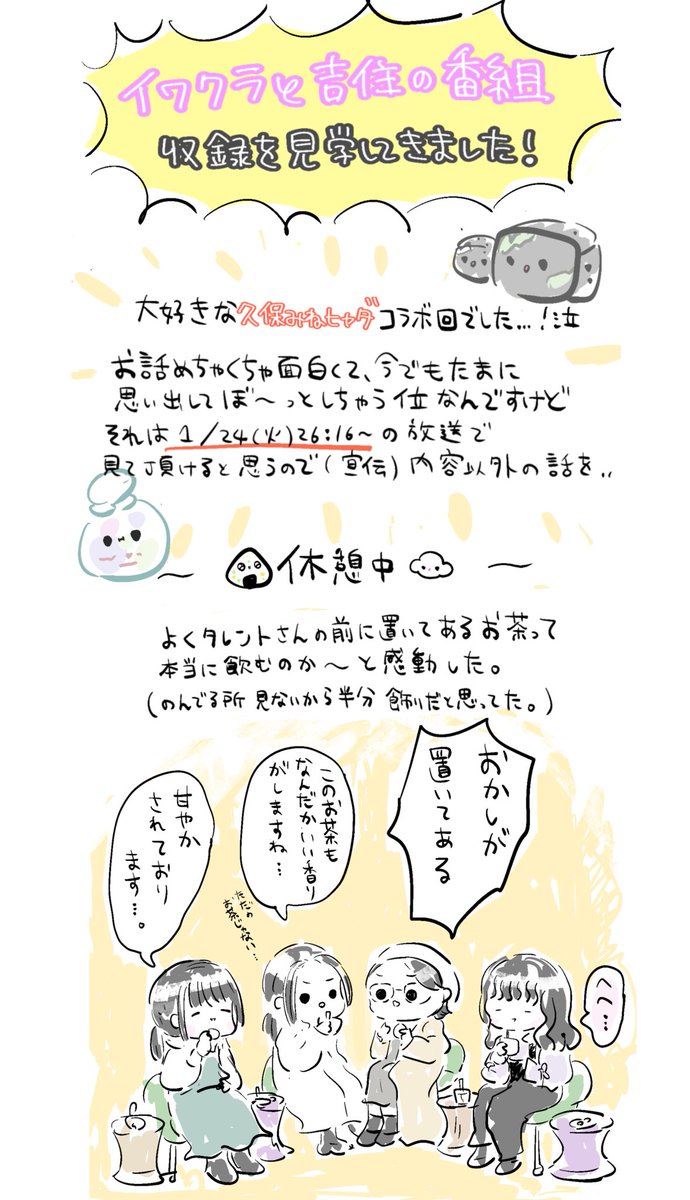 イワクラと吉住の番組
収録を見学してきました!
大好きな久保みねヒャダコラボ回でした...!泣
お話めちゃくちゃ面白くて、今でもたまに
思い出してぼ〜っとしちゃう位なんですけど
それは1/24(火)26:16〜の放送で
見て頂けると思うので(宣伝)内容以外の話を..
〜 休憩中 〜
よくタレントさんの前に置いてあるお茶って
本当に飲むのか〜と感動した。
(のんでる所見ないから半分飾りだと思ってた。)
おかしが
置いてある
このお茶も
なんだかいい香り
がしますね…
ただの
お茶じゃない…
甘やか
されており
ます…。
へへ…